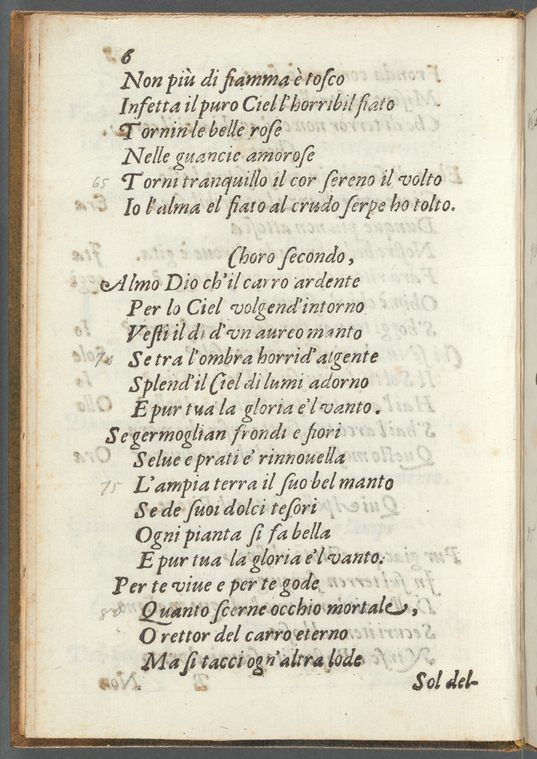 6
Non più di fiamma è tosco
Infetta il puro Ciel l'horribil fiato
Tornin le belle rose
Nelle guancie amorose
65 Torni tranquillo il cor sereno il volto
Io l'alma el fiato al crudo serpe ho tolto.
Choro secondo,
Almo Dio ch'il carro ardente
Per lo Ciel volgend'intorno
Vesti il dì d'vn aureo manto
70 Se tra l'ombra horrid'algente
Splend'il Ciel di lumi adorno
E pur tua la gloria e'l vanto.
Se germoglian frondi e fiori
Selue e prati e rinnouella
75 L'ampia terra il suo bel manto
Se de suoi dolci tesori
Ogni pianta si fa bella
E pur tua la gloria e'l vanto.
Per te viue e per te gode
80 Quanto scerne occhio mortale,
O rettor del carro eterno
Ma si tacci ogn'altra lode
Sol del-